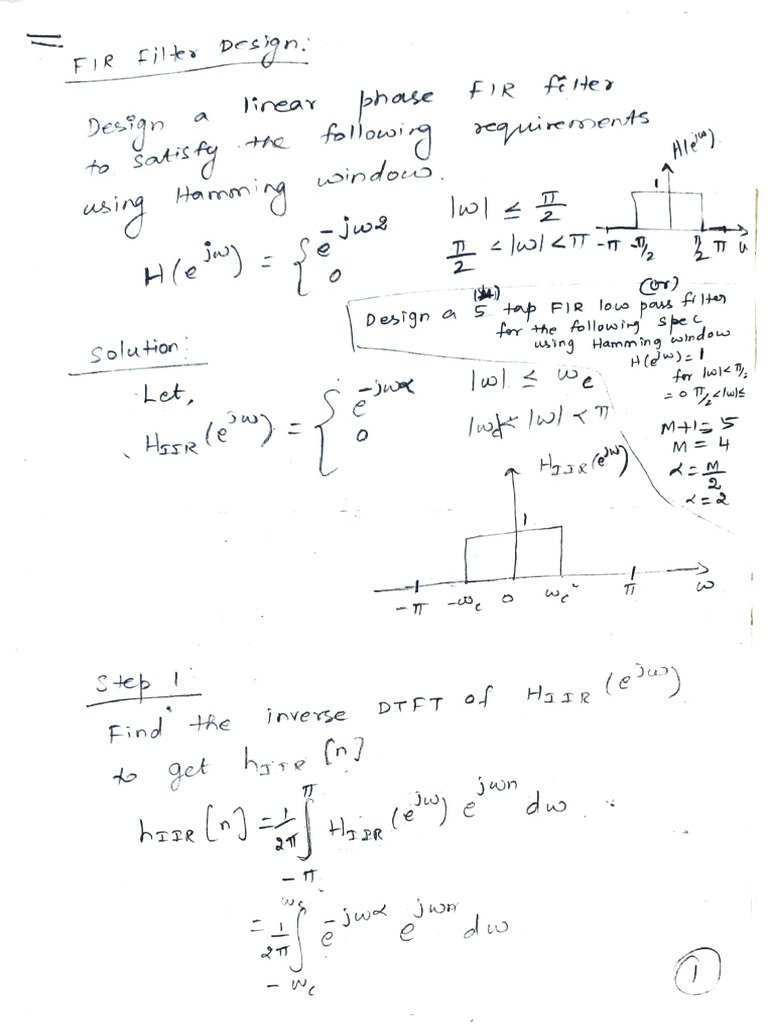 FIR Filter Design:
Design a linear phase FIR filter
to satisfy the following requirements
using Hamming window.
H(e^jω) = { e^-jω2 |ω| ≤ π/2
0 π/2 < |ω| < π
H(e^jω)
1
-π -π/2 π/2 π ω
(or)
Design a 5 tap FIR low pass filter
for the following spec
using Hamming window
H(e^jω) = 1
for |ω| < π/2
= 0 π/2 < |ω| ≤
M+1 = 5
M = 4
α = M/2
α = 2
Solution:
Let,
H_IIR(e^jω) = { e^-jωα |ω| ≤ ω_c
0 |ω_c| < |ω| < π
H_IIR(e^jω)
1
-π -ω_c 0 ω_c π ω
Step 1:
Find the inverse DTFT of H_IIR(e^jω)
to get h_IIR[n]
h_IIR[n] = 1/2π ∫_-π^π H_IIR(e^jω) e^jωn dω
= 1/2π ∫_-ω_c^ω_c e^-jωα e^jωn dω
1